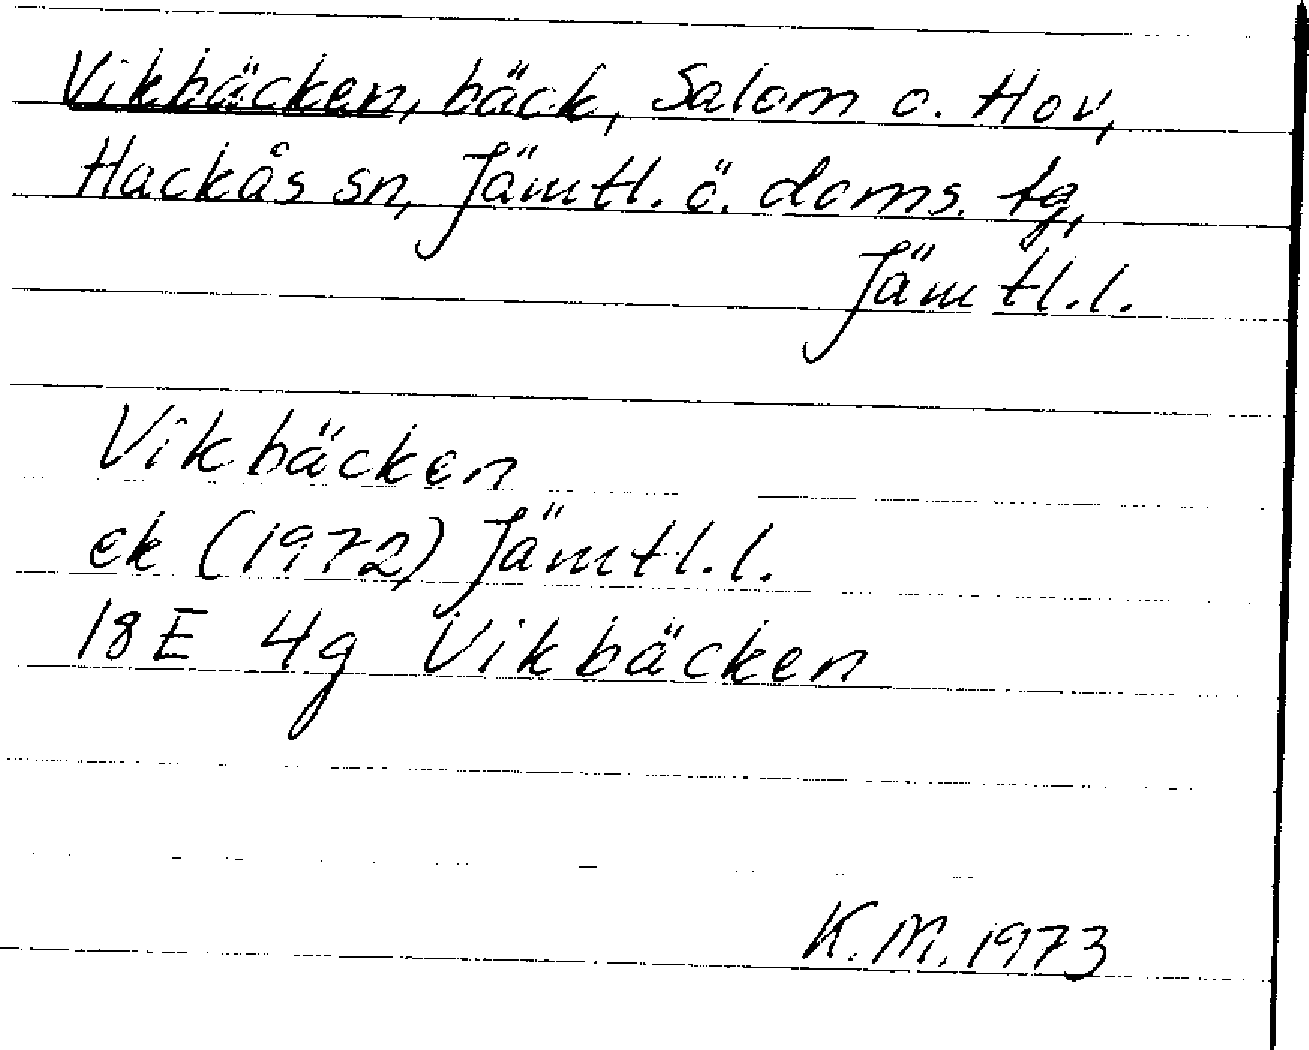 Vikbäcken, bäck, Salom o. Hov,
Hackås sn, Jämtl. ö. doms. tg,
Jämtl. l.
Vikbäcken
ek (1972) Jämtl. l.
18 E 4g Vikbäcken
K. M. 1973